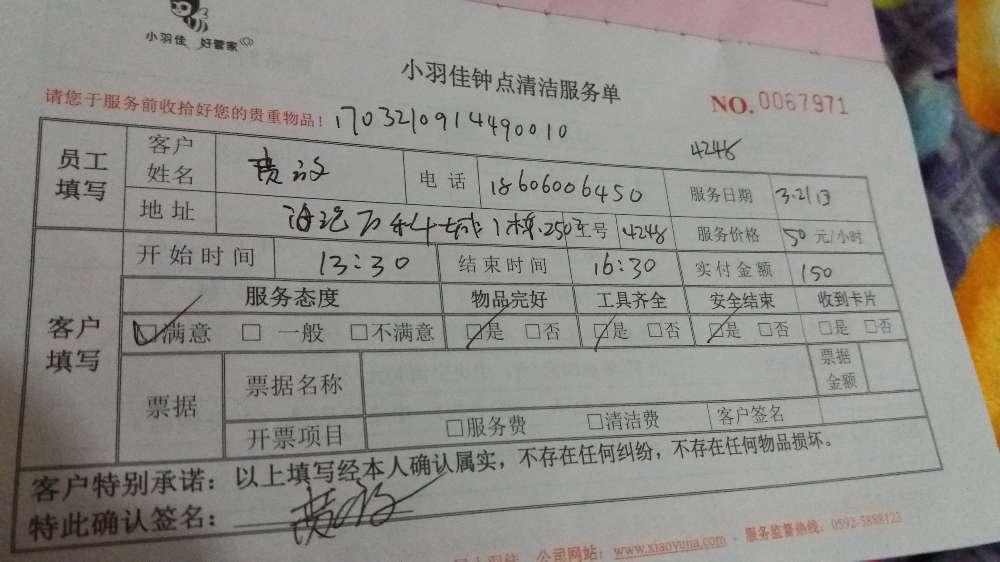 小羽佳 好管家
小羽佳钟点清洁服务单
NO. 0067971
请您于服务前收拾好您的贵重物品! 1703210914490010
4248
员工填写 客户姓名 电话 18606006450 服务日期 3.21日
地址 海沧万科城1栋.250 工号 4248 服务价格 50 元/小时
客户填写 开始时间 13:30 结束时间 16:30 实付金额 150
服务态度 物品完好 工具齐全 安全结束 收到卡片
☑满意 □一般 □不满意 ☑是 □否 ☑是 □否 ☑是 □否 □是 □否
票据 票据名称 票据金额
开票项目 □服务费 □清洁费 客户签名
客户特别承诺：以上填写经本人确认属实，不存在任何纠纷，不存在任何物品损坏。
特此确认签名：
小羽佳 公司网站：www.xiaoyuna.com 、服务监督热线：0592-5888123